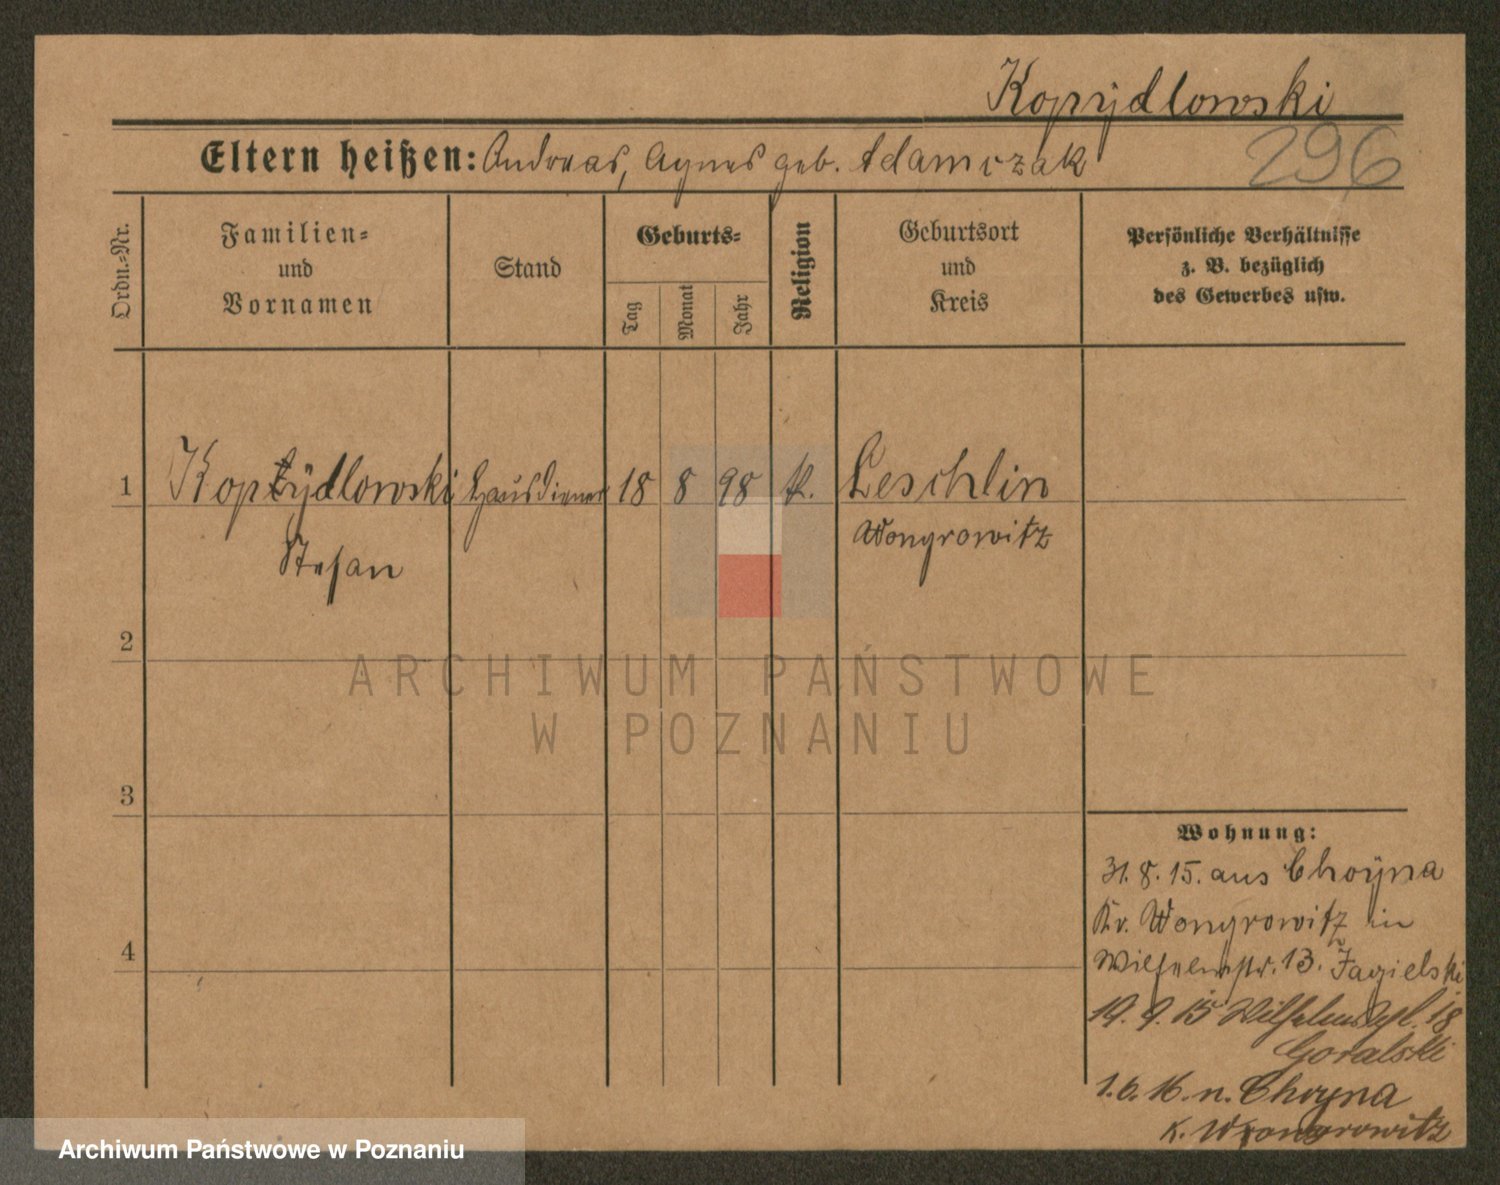 Koprÿdlowski
Eltern heißen: Andreas, Agnes geb. Adamczak
296
Ordn.-Nr.
Familien-
und
Vornamen
Stand
Geburts-
Tag
Monat
Jahr
Religion
Geburtsort
und
Kreis
Persönliche Verhältnisse
z. B. bezüglich
des Gewerbes usw.
1 Koprzÿdlowski Hausdiener 18 8 98 k. Leschlin
Stefan Wongrowitz
2
ARCHIWUM PAŃSTWOWE
W POZNANIU
3
4
Wohnung:
31. 8. 15. aus Choÿna
Kr. Wongrowitz in
Wilhelmstr. 13. Jagielski
19. 9. 15 Wilhelmspl. 18
Goralski
1. 6. 16. n. Choyna
K. Wongrowitz
Archiwum Państwowe w Poznaniu